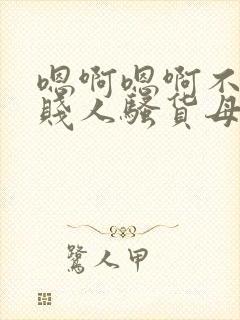 嗯啊嗯啊不
賤人騷货母
鷺人甲